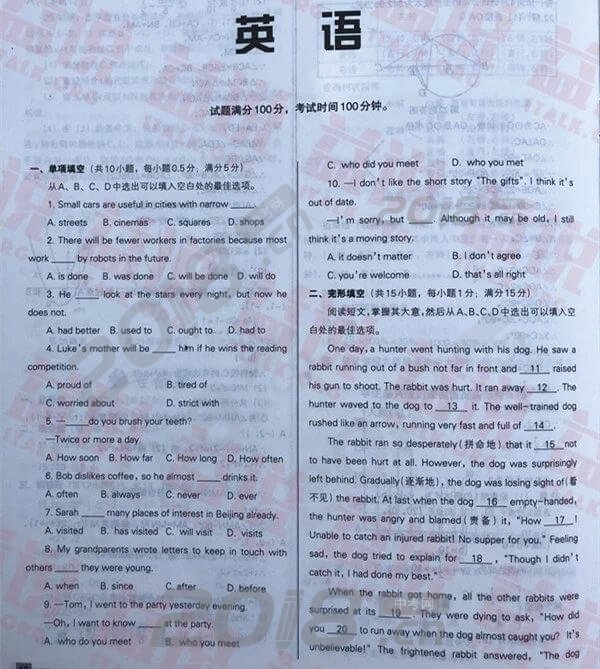 英 语
试题满分100分，考试时间100分钟。
一、单项填空（共10小题，每小题0.5分；满分5分）
从A、B、C、D中选出可以填入空白处的最佳选项。
1. Small cars are useful in cities with narrow ____.
A. streets B. cinemas C. squares D. shops
2. There will be fewer workers in factories because most
work ____ by robots in the future.
A. is done B. was done C. will be done D. will do
3. He ____ look at the stars every night, but now he
does not.
A. had better B. used to C. ought to D. had to
4. Luke's mother will be ____ him if he wins the reading
competition.
A. proud of B. tired of
C. worried about D. strict with
5. —____do you brush your teeth?
—Twice or more a day.
A. How soon B. How far C. How long D. How often
6. Bob dislikes coffee, so he almost ____ drinks it.
A. often B. always C. never D. ever
7. Sarah ____ many places of interest in Beijing already.
A. visited B. has visited C. will visit D. visits
8. My grandparents wrote letters to keep in touch with
others ____ they were young.
A. when B. since C. after D. before
9. —Tom, I went to the party yesterday evening.
—Oh, I want to know ____ at the party.
A. who do you meet B. who you meet
C. who did you meet D. who you met
10. —I don't like the short story "The gifts". I think it's
out of date.
—I'm sorry, but ____. Although it may be old, I still
think it's a moving story.
A. it doesn't matter B. I don't agree
C. you're welcome D. that's all right
二、完形填空（共15小题，每小题1分；满分15分）
阅读短文，掌握其大意，然后从A、B、C、D中选出可以填入空
白处的最佳选项。
One day, a hunter went hunting with his dog. He saw a
rabbit running out of a bush not far in front and 11 raised
his gun to shoot. The rabbit was hurt. It ran away 12 . The
hunter waved to the dog to 13 it. The well-trained dog
rushed like an arrow, running very fast and full of 14 .
The rabbit ran so desperately(拼命地) that it 15 not
to have been hurt at all. However, the dog was surprisingly
left behind. Gradually(逐渐地), the dog was losing sight of(看
不见) the rabbit. At last when the dog 16 empty-handed,
the hunter was angry and blamed(责备) it, "How 17 !
Unable to catch an injured rabbit! No supper for you." Feeling
sad, the dog tried to explain for 18 , "Though I didn't
catch it, I had done my best."
When the rabbit got home, all the other rabbits were
surprised at its 19 . They were dying to ask, "How did
you 20 to run away when the dog almost caught you? It's
unbelievable!" The frightened rabbit answered, "The dog